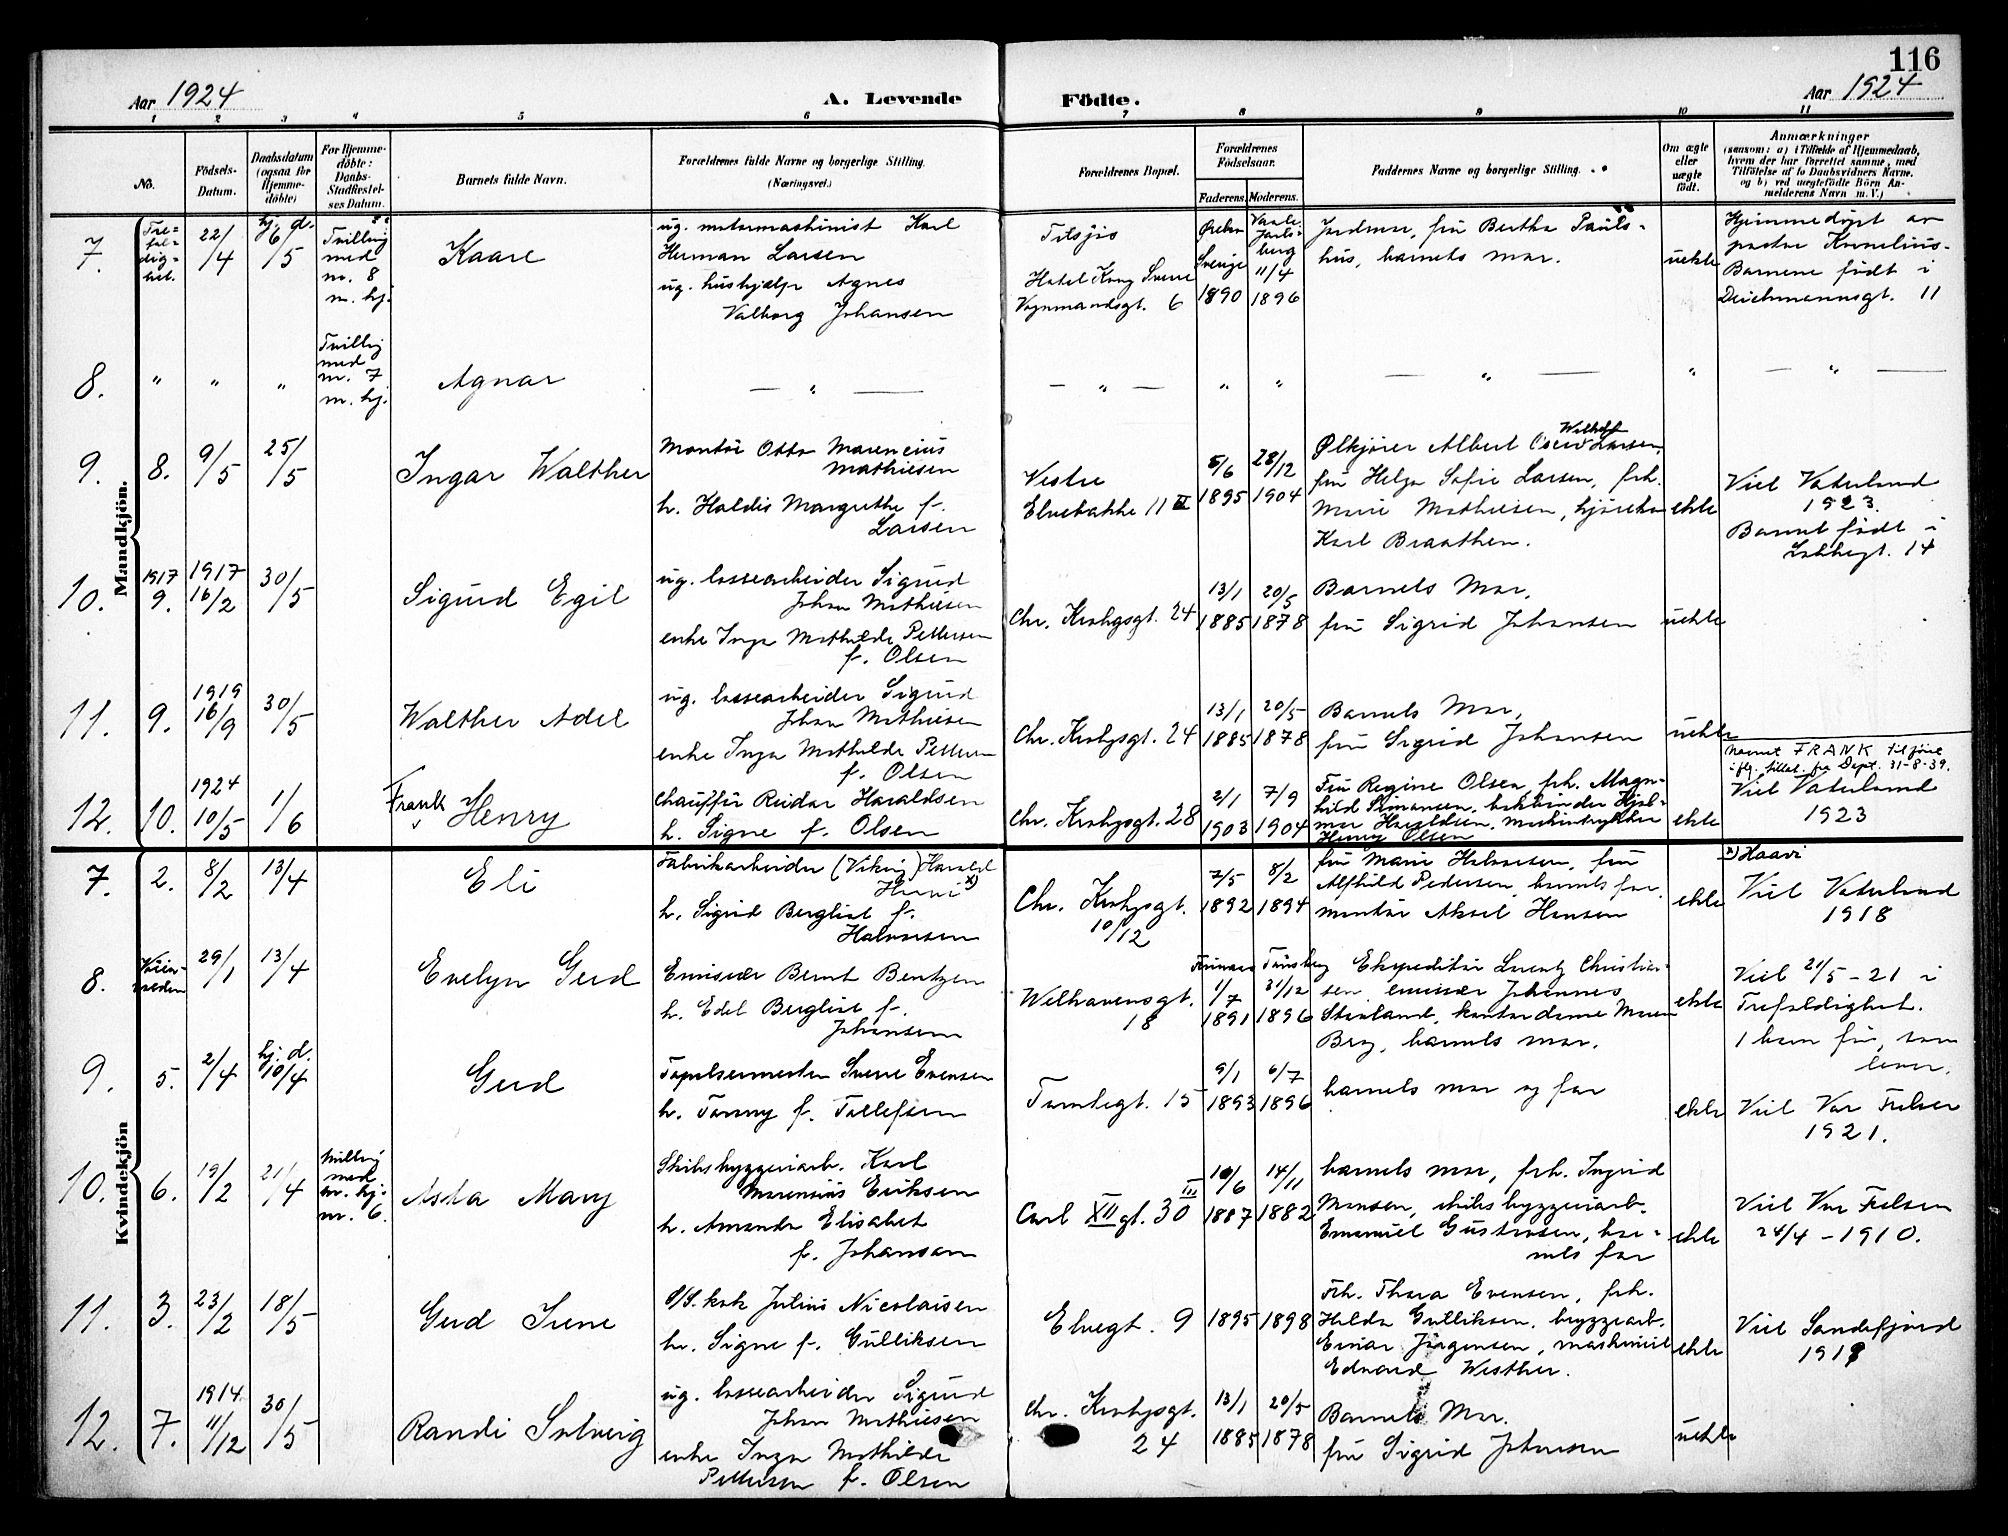 116
Aar 1924
A. Levende
Födte.
Aar 1924
1 2 3 4 5 6 7 8 9 10 11
No.
Födsels-
Datum.
Daabsdatum
(ogsaa för
Hjemme-
döbte)
For Hjemme-
döbte:
Daabs-
Stadfæstel-
ses Datum.
Barnets fulde Navn.
Forældrenes fulde Navne og borgerlige Stilling.
(Næringsvei.)
Forældrenes Bopæl.
Forældrenes
Födselsaar.
Faderens. Moderens.
Faddernes Navne og borgerlige Stilling.
Om ægte
eller
uægte
födt.
Anmærkninger
(saasom: a) i Tilfælde af Hjemmedaab,
hvem der har forrettet samme, med
Tilföielse af to Daabsvidners Navne,
og b) ved uægtefödte Börn An-
melderens Navn m. V.)
Mandkjön.
7.
Tre-
fol-
dig-
het.
22/4
hj. d.
6/5
Tvilling
med
nr. 8
m. kj.
Kaare
ug. motormaskinist Karl
Herman Larsen
ug. hushjælp Agnes
Valborg Johansen
Tilsjøs
Hotel Kong Sverre
Vognmandsgt. 6
Örebro
Sverige
1890
Vaale
Jarls-
berg
11/4
1896
Jordmor, frü Bertha Paüls-
hüs, barnets mor.
uekte
Hjemmedøpt av
pastor Kornelius-
Barnene født i
Deichmannsgt. 11
8. " " "
Tvilling
med
nr. 7
m. kj.
Agnar
— " —
— " — " "
— " — "
— " —
9. 8. 9/5 25/5
Ingar Walther
Montör Otto Marencius
Mathiesen
h. Haldis Margrethe f.
Larsen
Vestre
Elvebakke 11 III
5/6
1895
28/12
1904
Ølkjörer Albert Larsen,
frü Helga Sofie Larsen, frk.
Marie Mathiesen,
Karl Braathen.
ekte
Viet Vaterland
1923.
Barnet født i
14
10. 1917
9.
1917
16/2
30/5
Sigurd Egil
ug. lossearbeider Sigurd
Johan Mathiesen
enke Inga Mathilde Pettersen
f. Olsen
Chr. Krohgsgt. 24
13/1
1885
20/5
1878
Barnets Mor,
frü Sigrid Johansen
uekte
11. 9.
1919
16/9
30/5
Walther Adel
ug. lossearbeider Sigurd
Johan Mathiesen
enke Inga Mathilde Pettersen
f. Olsen
Chr. Krohgsgt. 24
13/1
1885
20/5
1878
Barnets Mor,
frü Sigrid Johansen
uekte
12. 10.
1924
10/5
1/6
Frank
Henry
Chauffür Reidar Haraldsen
h. Signe f. Olsen
Chr. Krohgsgt. 28
2/1
1903
7/9
1904
Frü Regine Olsen, frk. Magn-
hild Simonsen, bokbinder Hjal-
mar Haraldsen, maskintrykker
Henry Olsen
ekte
Navnet FRANK tilføiet
iflg. tillat. fra Dept. 31-8-39.
Viet Vaterland
1923
Kvindekjön
7. 2. 8/2 13/4
Eli
Fabrikarbeider (Viking) Harald
x)
h. Sigrid Bergliot f.
Halvorsen
Chr. Krohgsgt.
10/12
7/5
1892
8/2
1894
frü Marie Halvorsen, frü
Alfhild Pedersen, barnets far,
montör Aksel Hansen
ekte
x) Haavi
Viet Vaterland
1918
8. 29/1 13/4
Evelyn Gerd
Emissær Bernt Bentzen
h. Edel Bergliot f.
Johansen
Welhavensgt.
18
1/7
1891
Tønsberg
31/12
1896
Ekspeditör Lorentz Christian-
sen, emissær Johannes
Straland, kontordame Maren
Bry, barnets mor.
ekte
Viet 21/5 - 21 i
Trefoldighet.
1 barn før, som
lever.
9. 5. 2/4
hj. d.
10/4
Gerd
Tapetsermester Sverre Evensen
h. Fanny f. Tollefsen
Tomtegt. 15
9/1
1893
6/7
1896
barnets mor og far
ekte
Viet Vor Frelser
1921.
10. 6. 19/2 21/4
tvilling
med
m. kj.
nr. 6.
Asta Mary
Skibsbyggeriarb. Karl
Marensius Eriksen
h. Amanda Elisabet
f. Johansan
Carl XII gt. 30 III
10/6
1887
14/11
1882
barnets mor, frk. Ingrid
Monsen, skibsbyggeriarb.
Emanuel Gustavsen, bar-
nets far
ekte
Viet Vor Frelser
24/4 - 1910.
11. 3. 23/2 18/5
Gerd Irene
S/S. kok Julius Nicolaisen
h. Signe f. Gulliksen
Elvegt. 9
1895
1898
Frk. Thora Evensen, frk.
Halda Gulliksen, bryggearb.
Einar Jörgensen, maskinist
Edvard Westher.
ekte
Viet Sandefjord
191
12. 7.
1914
11/12
30/5
Randi Solveig
ug. lossearbeider Sigurd
Johan Mathiesen
enke Inga Mathilde
Pettersen f. Olsen
Chr. Krohgsgt.
24
13/1
1885
20/5
1878
Barnets Mor.
frü Sigrid Johansen
uekte